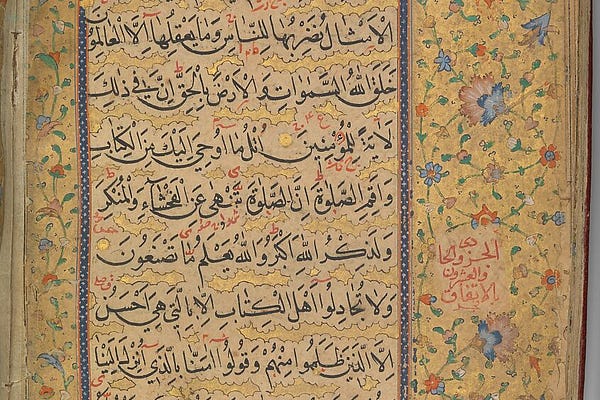 الامثال نضربها للناس وما يعقلها الا العالمون
خلق الله السموات والارض بالحق ان في ذلك
لاية للمؤمنين اتل ما اوحي اليك من الكتاب
واقم الصلوة ان الصلوة تنهى عن الفحشاء والمنكر
ولذكر الله اكبر والله يعلم ما تصنعون
ولا تجادلوا اهل الكتاب الا بالتي هي احسن
الا الذين ظلموا منهم وقولوا امنا بالذي انزل الينا
الجزو الحا
دى
والعشرون
بالاتفاق